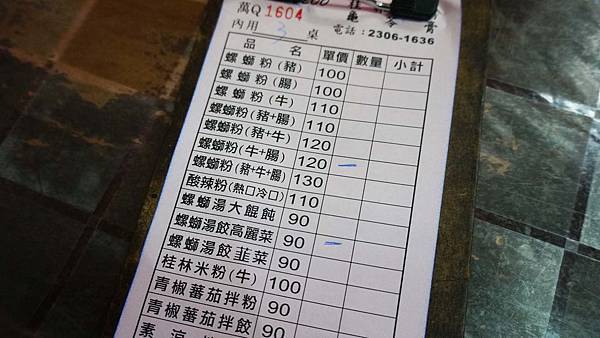 萬Q 1604
電話：2306-1636
內用 3 桌
品名 單價 數量 小計
螺螄粉(豬) 100
螺螄粉(腸) 100
螺螄粉(牛) 110
螺螄粉(豬+腸) 110
螺螄粉(豬+牛) 120
螺螄粉(牛+腸) 120 一
螺螄粉(豬+牛+腸) 130
酸辣粉(熱口冷口) 110
螺螄湯大餛飩 90
螺螄湯餃高麗菜 90 一
螺螄湯餃韭菜 90
桂林米粉(牛) 100
青椒蕃茄拌粉 90
青椒蕃茄拌餃 90